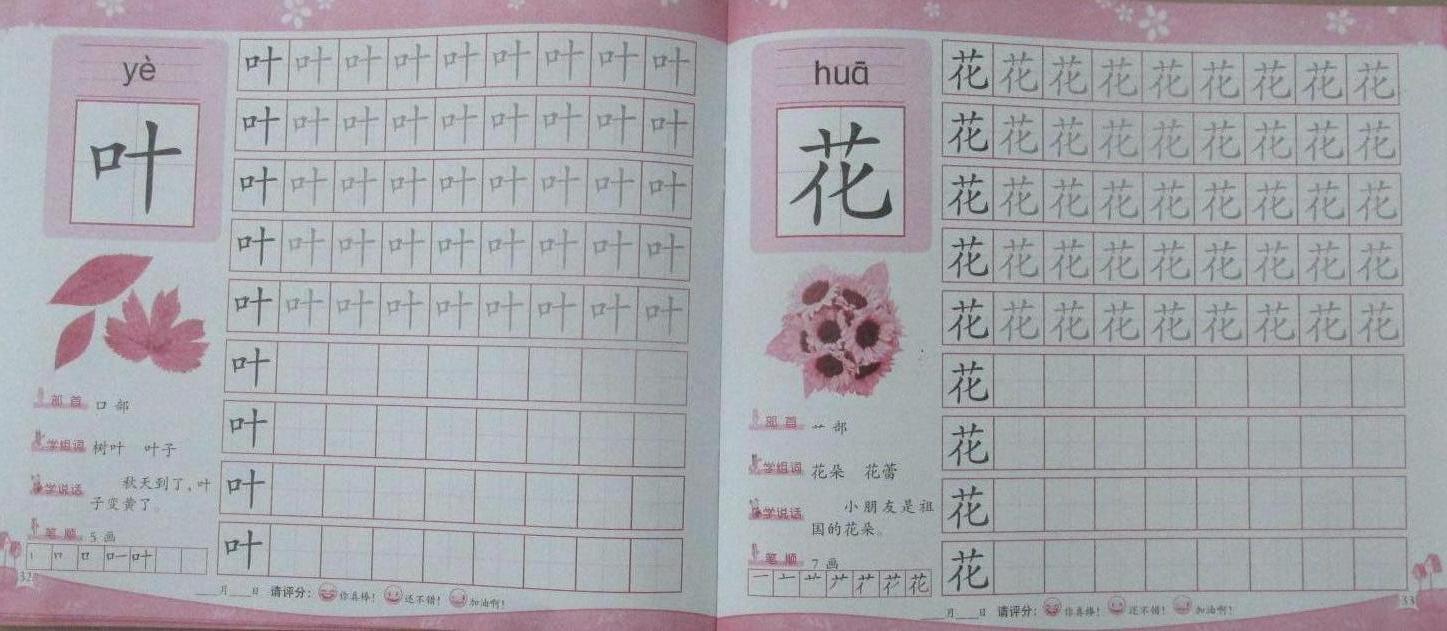 yè
叶
叶 叶 叶 叶 叶 叶 叶 叶 叶
叶 叶 叶 叶 叶 叶 叶 叶 叶
叶 叶 叶 叶 叶 叶 叶 叶 叶
叶 叶 叶 叶 叶 叶 叶 叶 叶
叶 叶 叶 叶 叶 叶 叶 叶 叶
叶
叶
叶
叶
部首 口部
学组词 树叶 叶子
学说话 秋天到了，叶
子变黄了。
笔顺 5画
叶
32
月 日 请评分： 你真棒！ 还不错！ 加油啊！
huā
花
花 花 花 花 花 花 花 花 花
花 花 花 花 花 花 花 花 花
花 花 花 花 花 花 花 花 花
花 花 花 花 花 花 花 花 花
花 花 花 花 花 花 花 花 花
花
花
花
花
部首 艹部
学组词 花朵 花蕾
学说话 小朋友是祖
国的花朵。
笔顺 7画
花
33
月 日 请评分： 你真棒！ 还不错！ 加油啊！